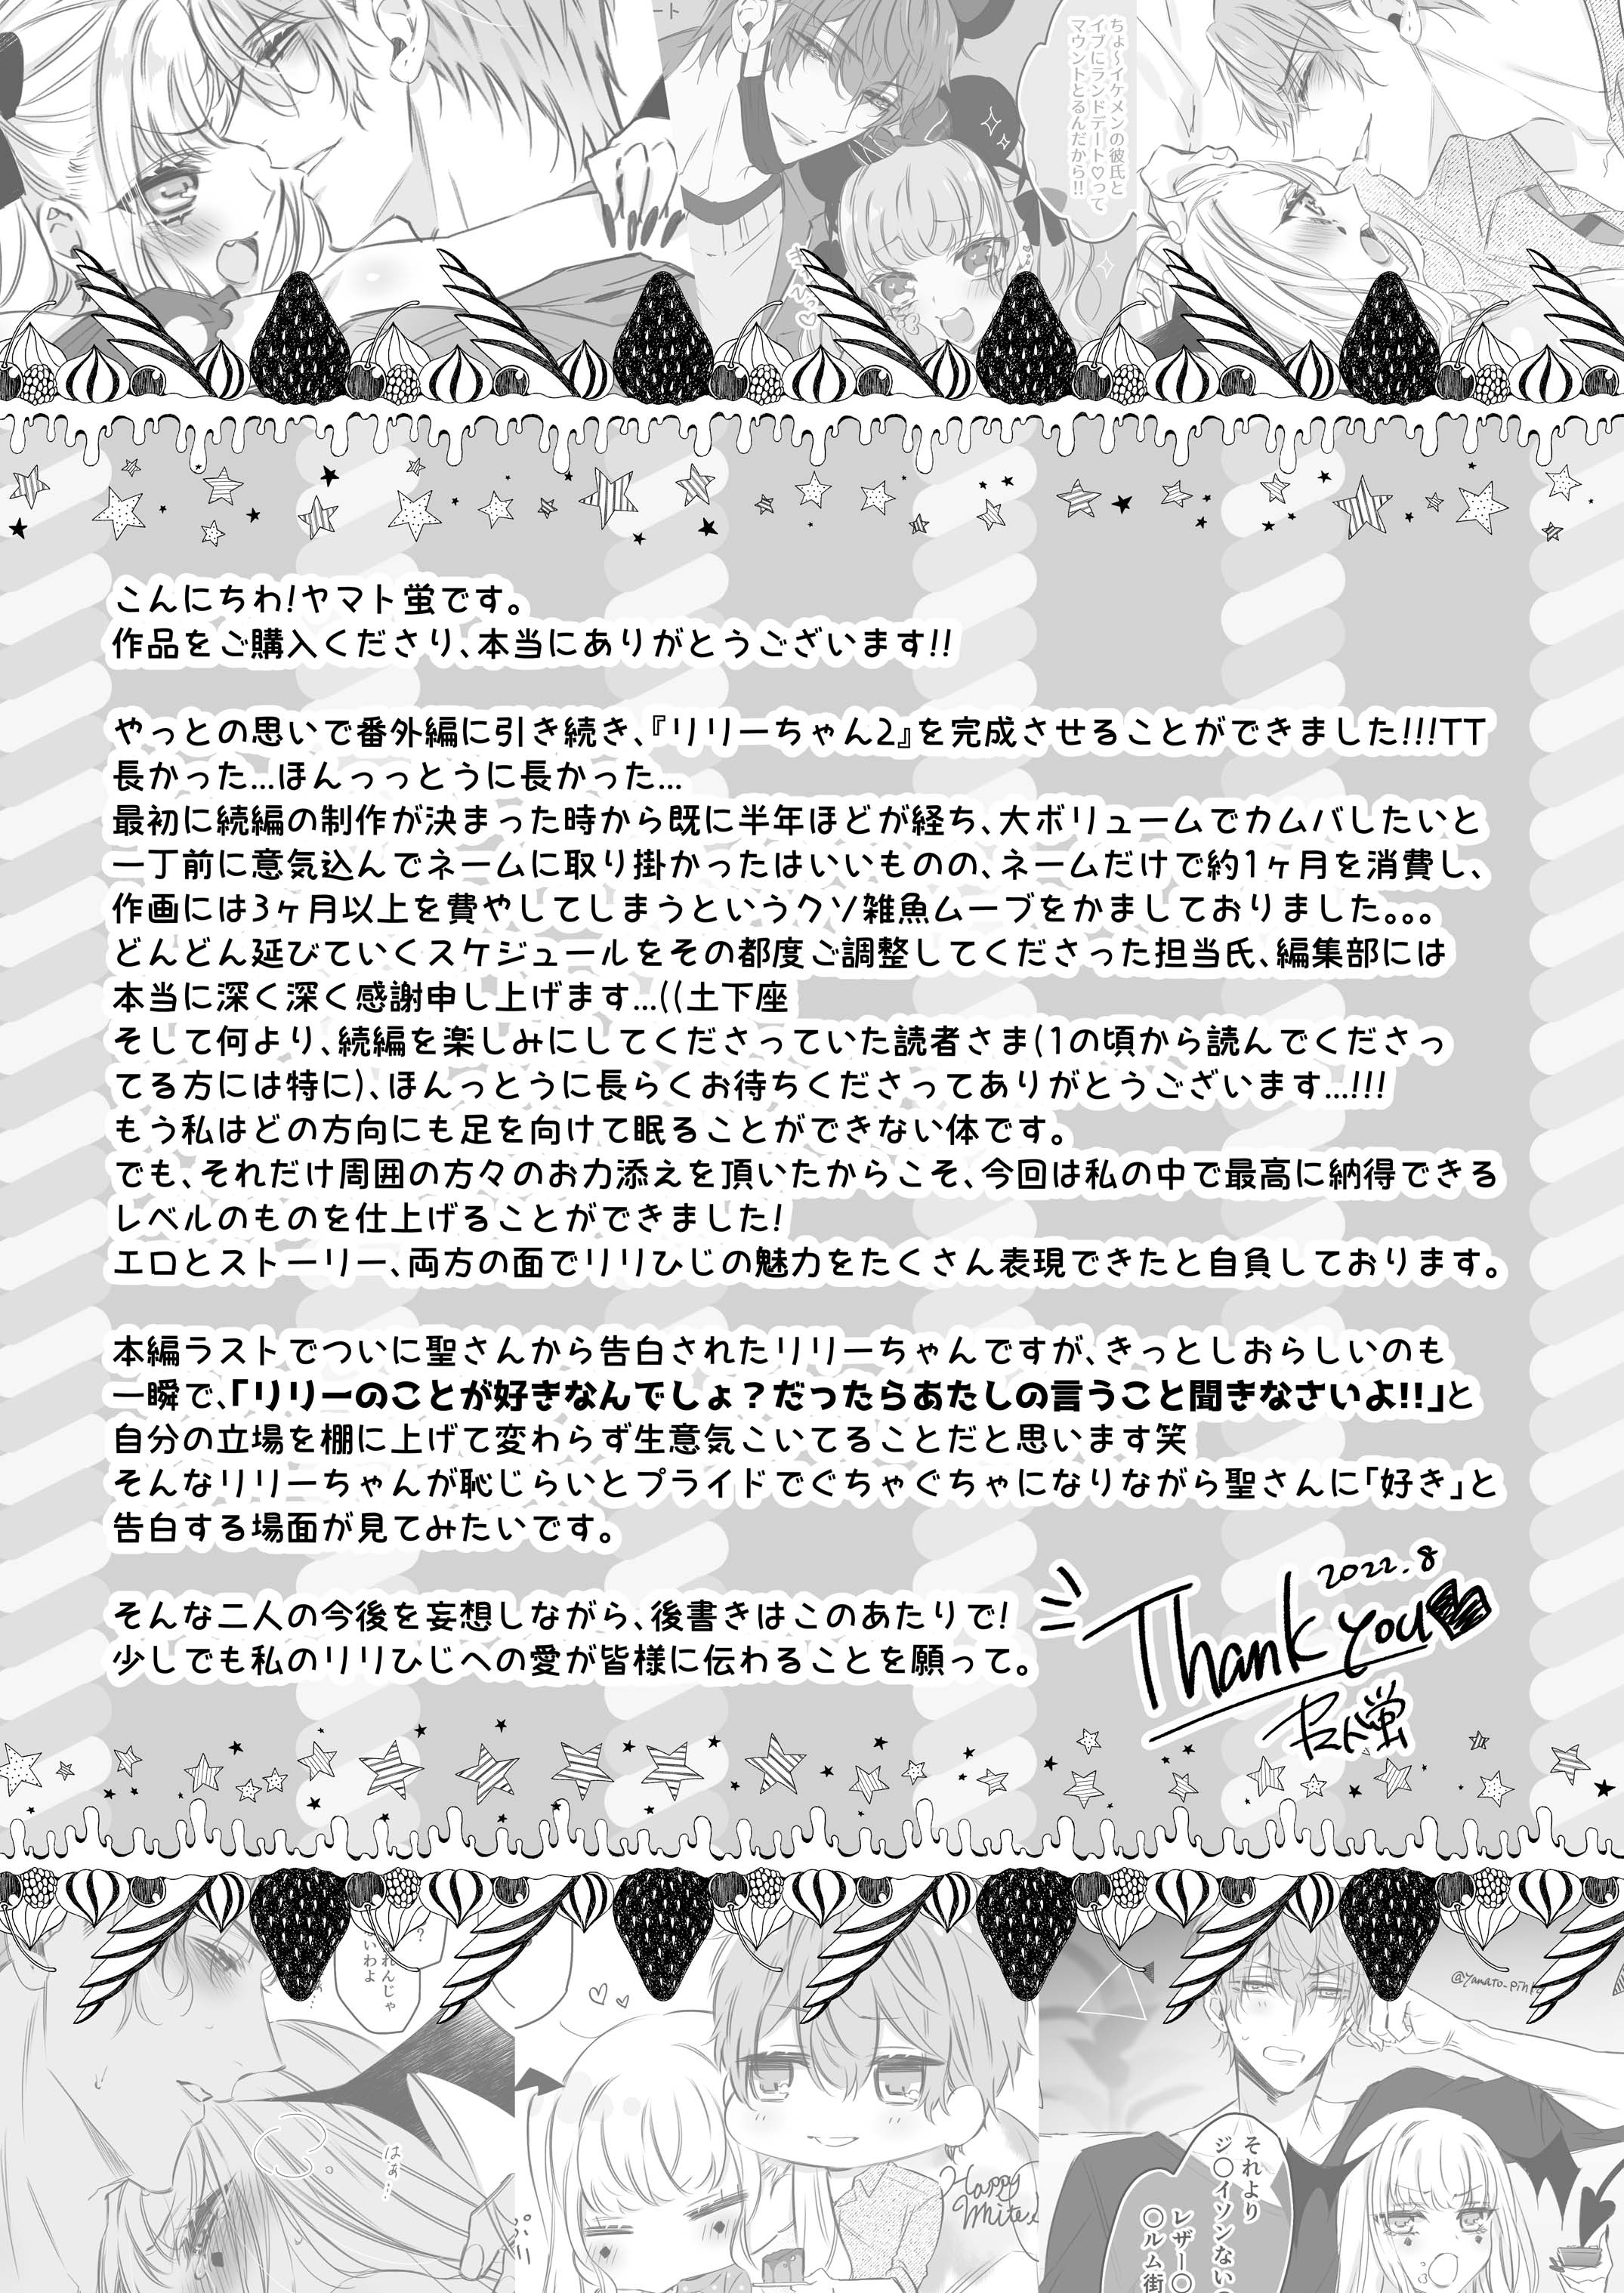 ちょ〜イケメンの彼氏と
イブにランドデート♡って
マウントとるんだから!!
こんにちわ!ヤマト蛍です。
作品をご購入くださり、本当にありがとうございます!!
やっとの思いで番外編に引き続き、『リリーちゃん2』を完成させることができました!!!TT
長かった...ほんっっとうに長かった...
最初に続編の制作が決まった時から既に半年ほどが経ち、大ボリュームでカムバしたいと
一丁前に意気込んでネームに取り掛かったはいいものの、ネームだけで約1ヶ月を消費し、
作画には3ヶ月以上を費やしてしまうというクソ雑魚ムーブをかましておりました。。。
どんどん延びていくスケジュールをその都度ご調整してくださった担当氏、編集部には
本当に深く深く感謝申し上げます...((土下座
そして何より、続編を楽しみにしてくださっていた読者さま(1の頃から読んでくださっ
てる方には特に)、ほんっとうに長らくお待ちくださってありがとうございます...!!!
もう私はどの方向にも足を向けて眠ることができない体です。
でも、それだけ周囲の方々のお力添えを頂いたからこそ、今回は私の中で最高に納得できる
レベルのものを仕上げることができました!
エロとストーリー、両方の面でリリひじの魅力をたくさん表現できたと自負しております。
本編ラストでついに聖さんから告白されたリリーちゃんですが、きっとしおらしいのも
一瞬で、「リリーのことが好きなんでしょ？だったらあたしの言うこと聞きなさいよ!!」と
自分の立場を棚に上げて変わらず生意気こいてることだと思います笑
そんなリリーちゃんが恥じらいとプライドでぐちゃぐちゃになりながら聖さんに「好き」と
告白する場面が見てみたいです。
そんな二人の今後を妄想しながら、後書きはこのあたりで!
少しでも私のリリひじへの愛が皆様に伝わることを願って。
2022.8
Thank you
ヤマト蛍
はぁ…
Happy
それより
ジ〇イソンない
レザー〇
〇ルム街